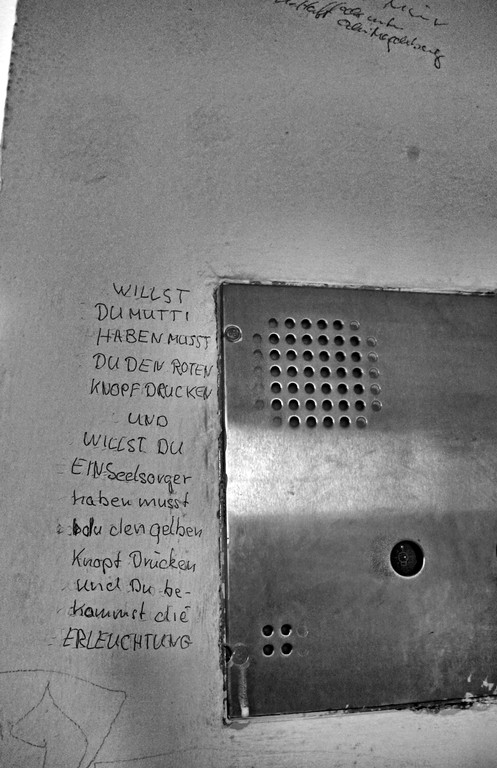 WILLST
DU MUTTI
HABEN MUSST
DU DEN ROTEN
KNOPF DRUCKEN
UND
WILLST DU
EIN Seelsorger
haben musst
du den gelben
Knopf Drücken
und Du be-
kommst die
ERLEUCHTUNG